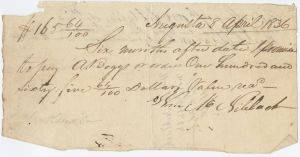 $165 64/100 Augusta 8 April 1836
Six months after date I promise
to pay A. Doggs or order One hundred and
sixty five 64/100 Dollars Value recd